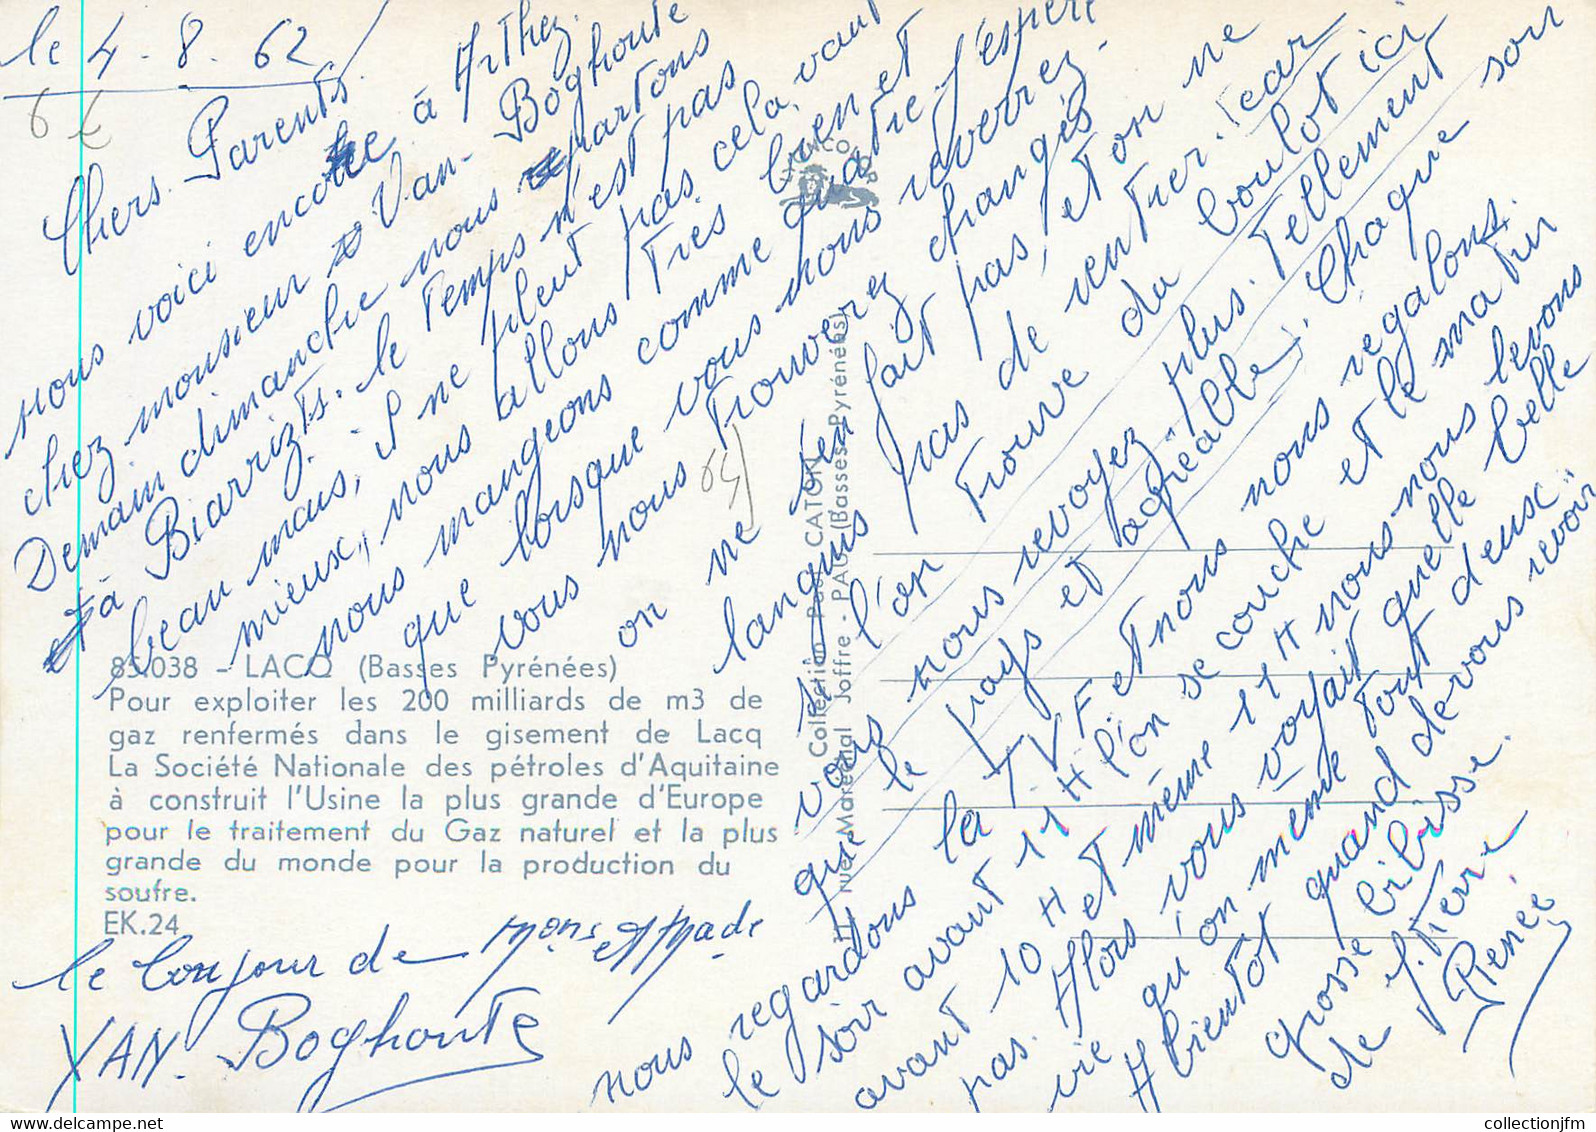 le 4-8-62
62
Chers Parents.
nous voici encore à Arthez.
chez monsieur Van-Boghoute
Demain dimanche nous partons
à Biarrizts. le temps n'est pas
beau mais, il ne pleut pas cela vaut
mieux, nous allons Très bien et
nous mangeons comme quatre. J'espère
que lorsque vous nous reverrez.
vous nous Trouverez changés
on ne s'en fait pas, et on ne
languis pas de rentrer. (car
l'on Trouve du boulot ici
vous nous revoyez plus. Tellement
que le pays et agréable). Chaque soir
nous regardons la T.V.F et nous nous regalons.
le soir avant 11H l'on se couche et le matin
avant 10H et même 11H nous nous levons
pas. Alors vous voyait quelle belle
vie qu'on mene Tout deusc..
A bientot quand de vous revoir
grosse bibisse.
de J. Pierre
Renée
(64)
85.038 - LACQ (Basses Pyrénées)
Pour exploiter les 200 milliards de m3 de
gaz renfermés dans le gisement de Lacq
La Société Nationale des pétroles d'Aquitaine
à construit l'Usine la plus grande d'Europe
pour le traitement du Gaz naturel et la plus
grande du monde pour la production du
soufre.
EK.24
le bonjour de Mons et Made
XAN. Boghoute
Collection Paul CATON
rue Maréchal Joffre - PAU (Basses-Pyrénées)
collectionjfm